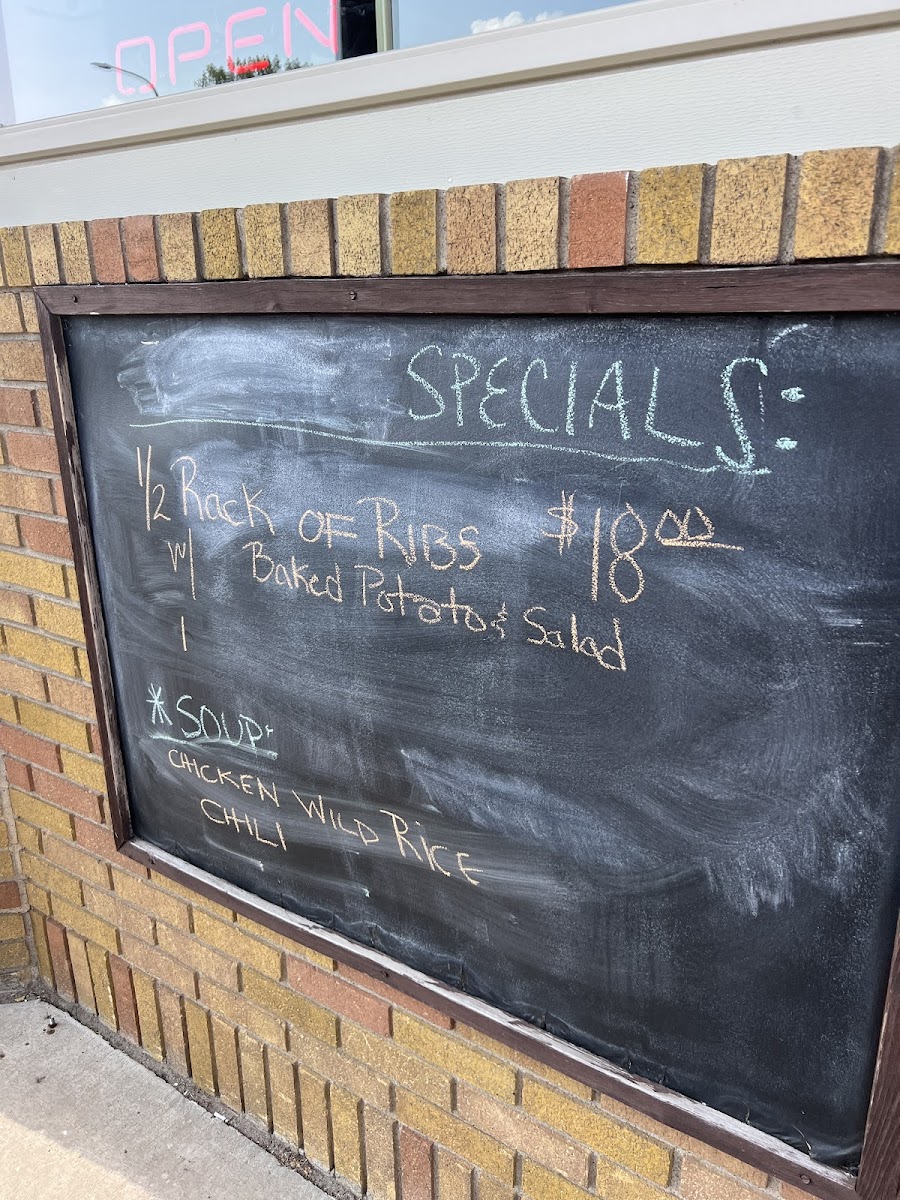 OPEN
SPECIALS:
1/2 Rack OF RIBS $18.00
w/ Baked Potato & Salad
* SOUP:
CHICKEN WILD RICE
CHILI